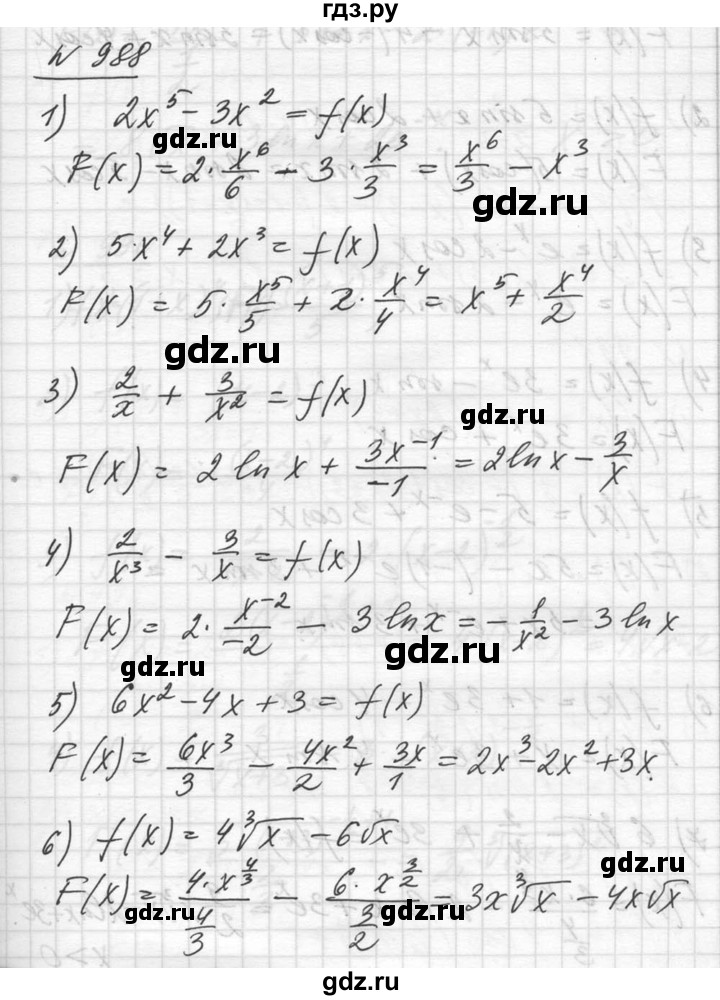 гдз.ру
N 988
1) 2x⁵ - 3x² = f(x)
gdz.ru
F(x) = 2 · x⁶/6 - 3 · x³/3 = x⁶/3 - x³
gdz.ru
2) 5·x⁴ + 2x³ = f(x)
F(x) = 5 · x⁵/5 + 2 · x⁴/4 = x⁵ + x⁴/2
gdz.ru
3) 2/x + 3/x² = f(x)
gdz.ru
F(x) = 2 ln x + 3x⁻¹/-1 = 2 ln x - 3/x
4) 2/x³ - 3/x = f(x)
F(x) = 2 · x⁻²/-2 - 3 ln x = - 1/x² - 3 ln x
gdz.ru
gdz.ru
5) 6x² - 4x + 3 = f(x)
F(x) = 6x³/3 - 4x²/2 + 3x/1 = 2x³ - 2x² + 3x.
gdz.ru
6) f(x) = 4∛x - 6√x
gdz.ru
F(x) = 4·x^(4/3)/(4/3) - 6·x^(3/2)/(3/2) = 3x∛x - 4x√x
gdz.ru
gdz.ru
gdz.ru